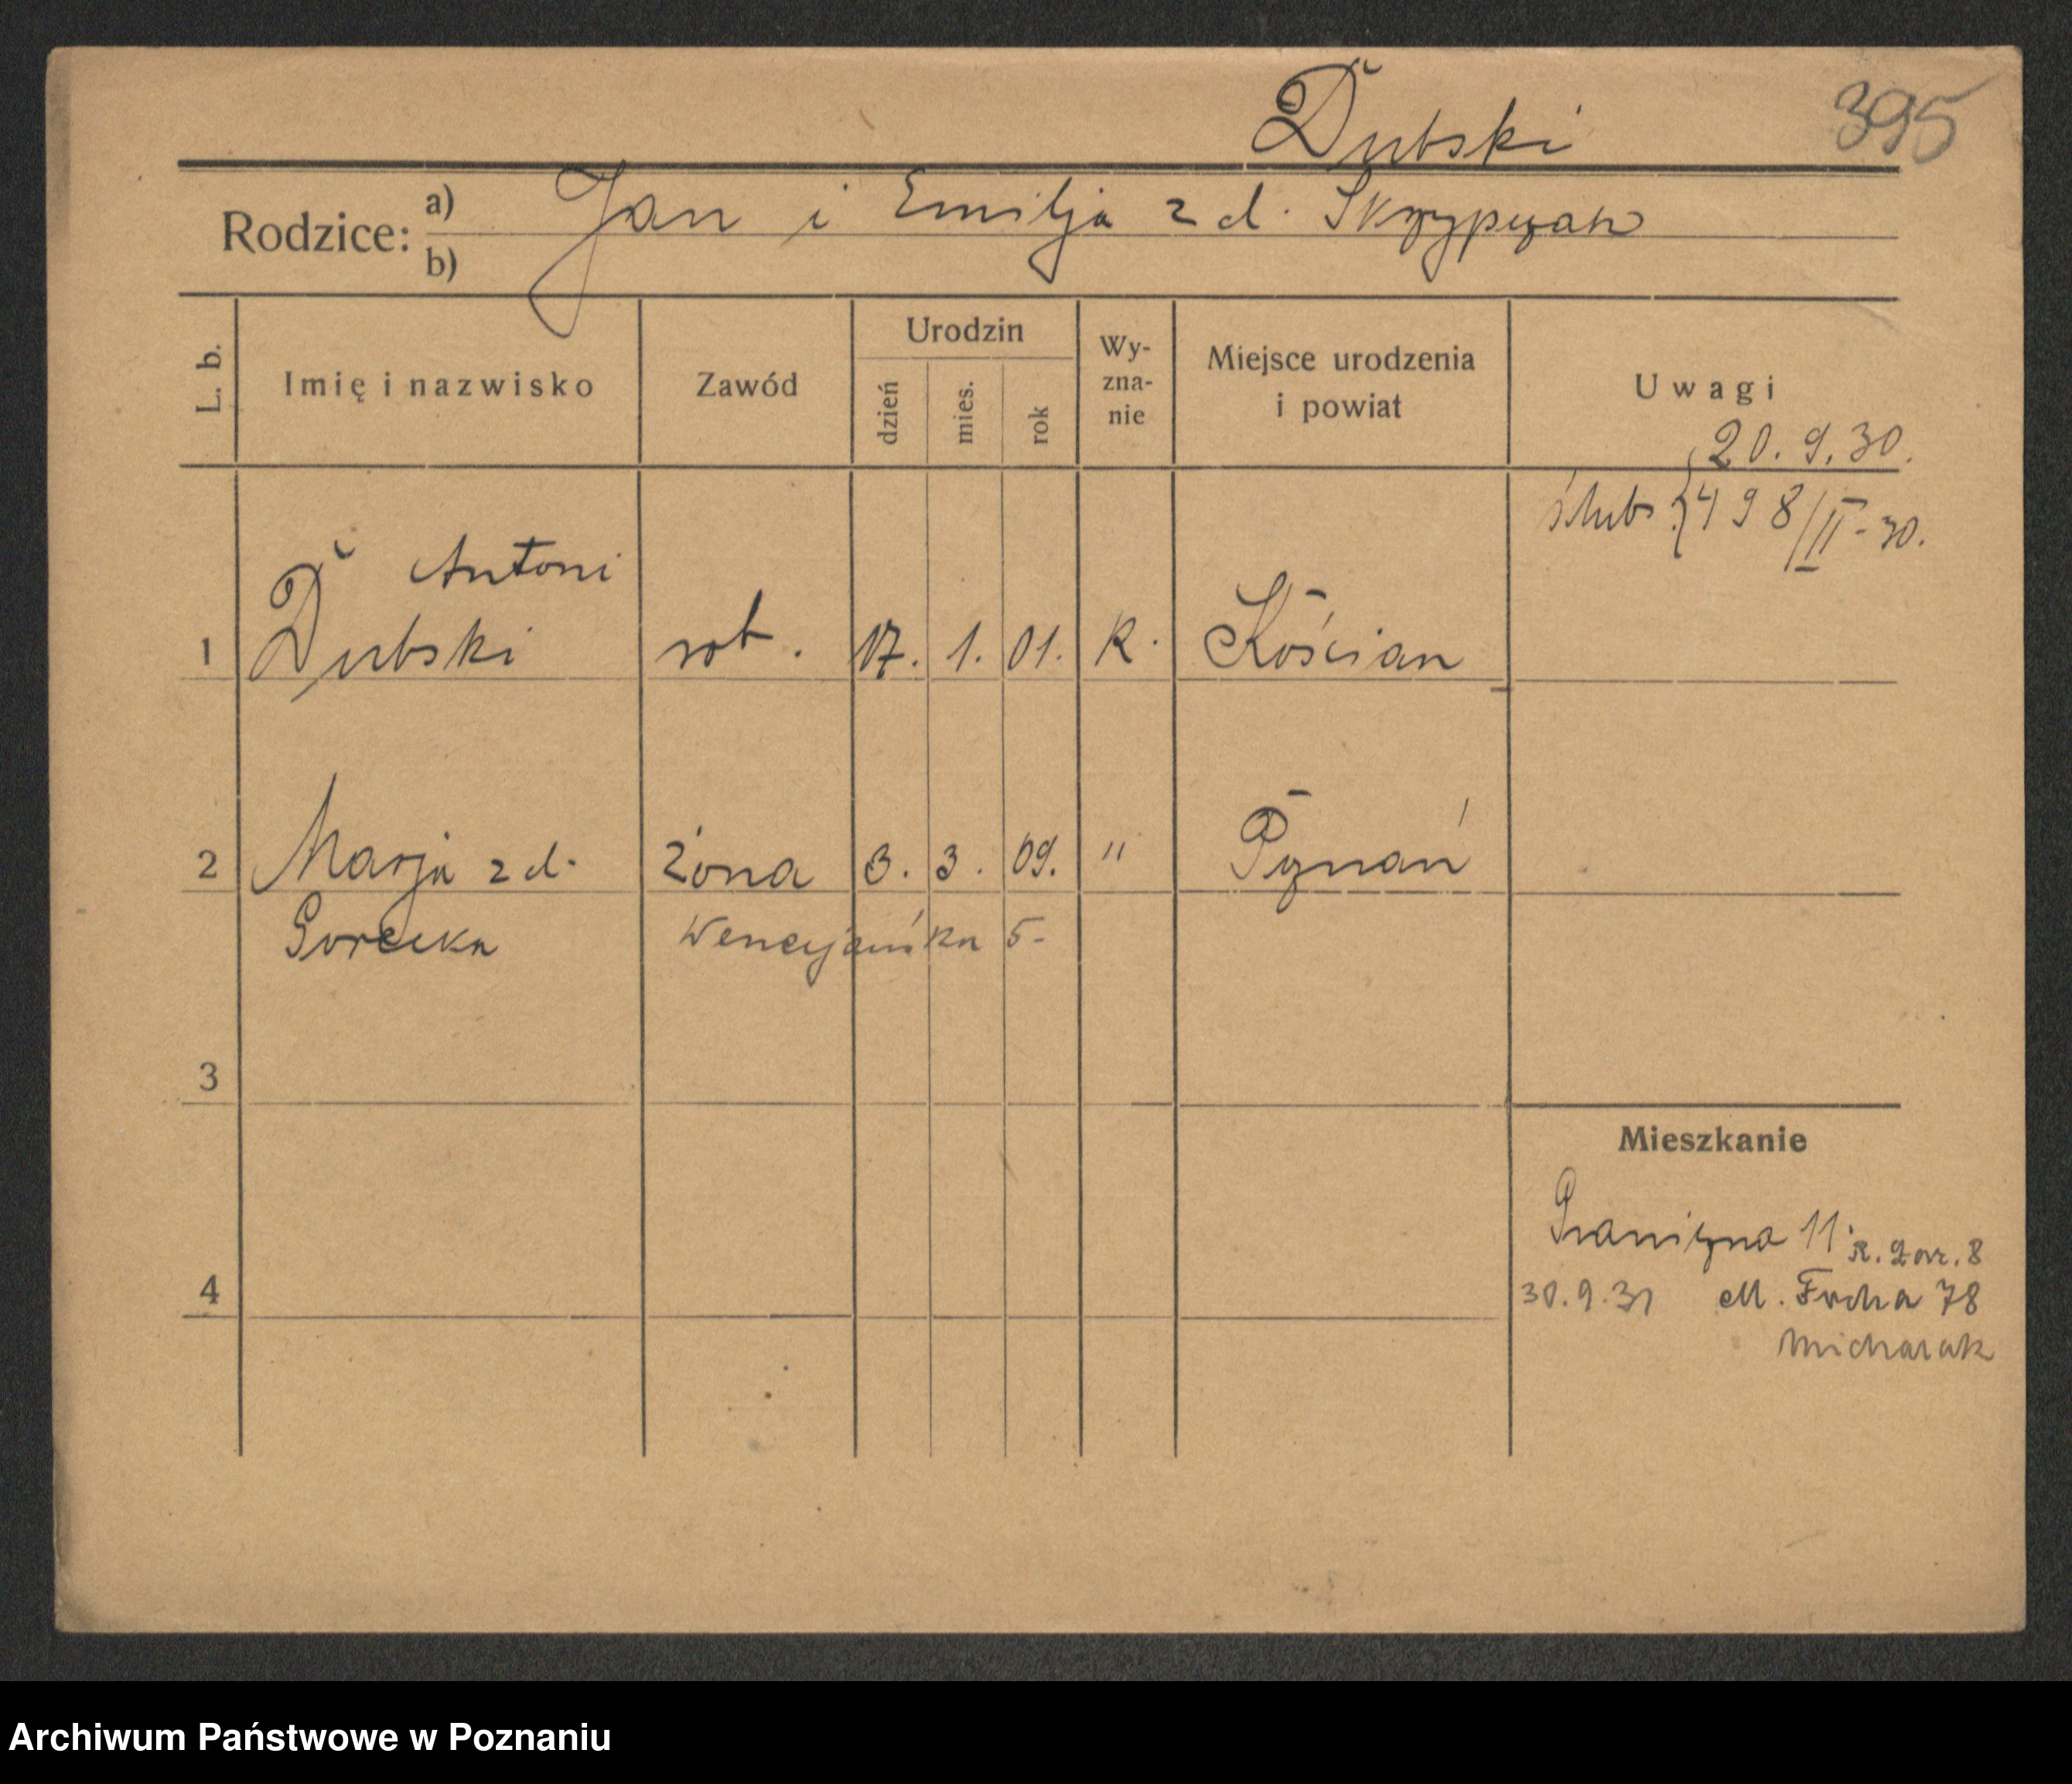 Dubski 395
Rodzice: a) Jan i Emilja z d. Skrzypczak
b)
L. b. Imię i nazwisko Zawód Urodzin dzień mies. rok Wy-zna-nie Miejsce urodzenia i powiat Uwagi
20. 9. 30.
ślub { 498/II-30.
Antoni
1 Dubski rob. 17. 1. 01. K. Kościan
2 Marja z d. żona 3. 3. 09. " Poznań
Gorecka Wenecjańska 5-
3
Mieszkanie
Graniczna 11. R. Gar. 8
4 30.9.31 M. Focha 78
Archiwum Państwowe w Poznaniu